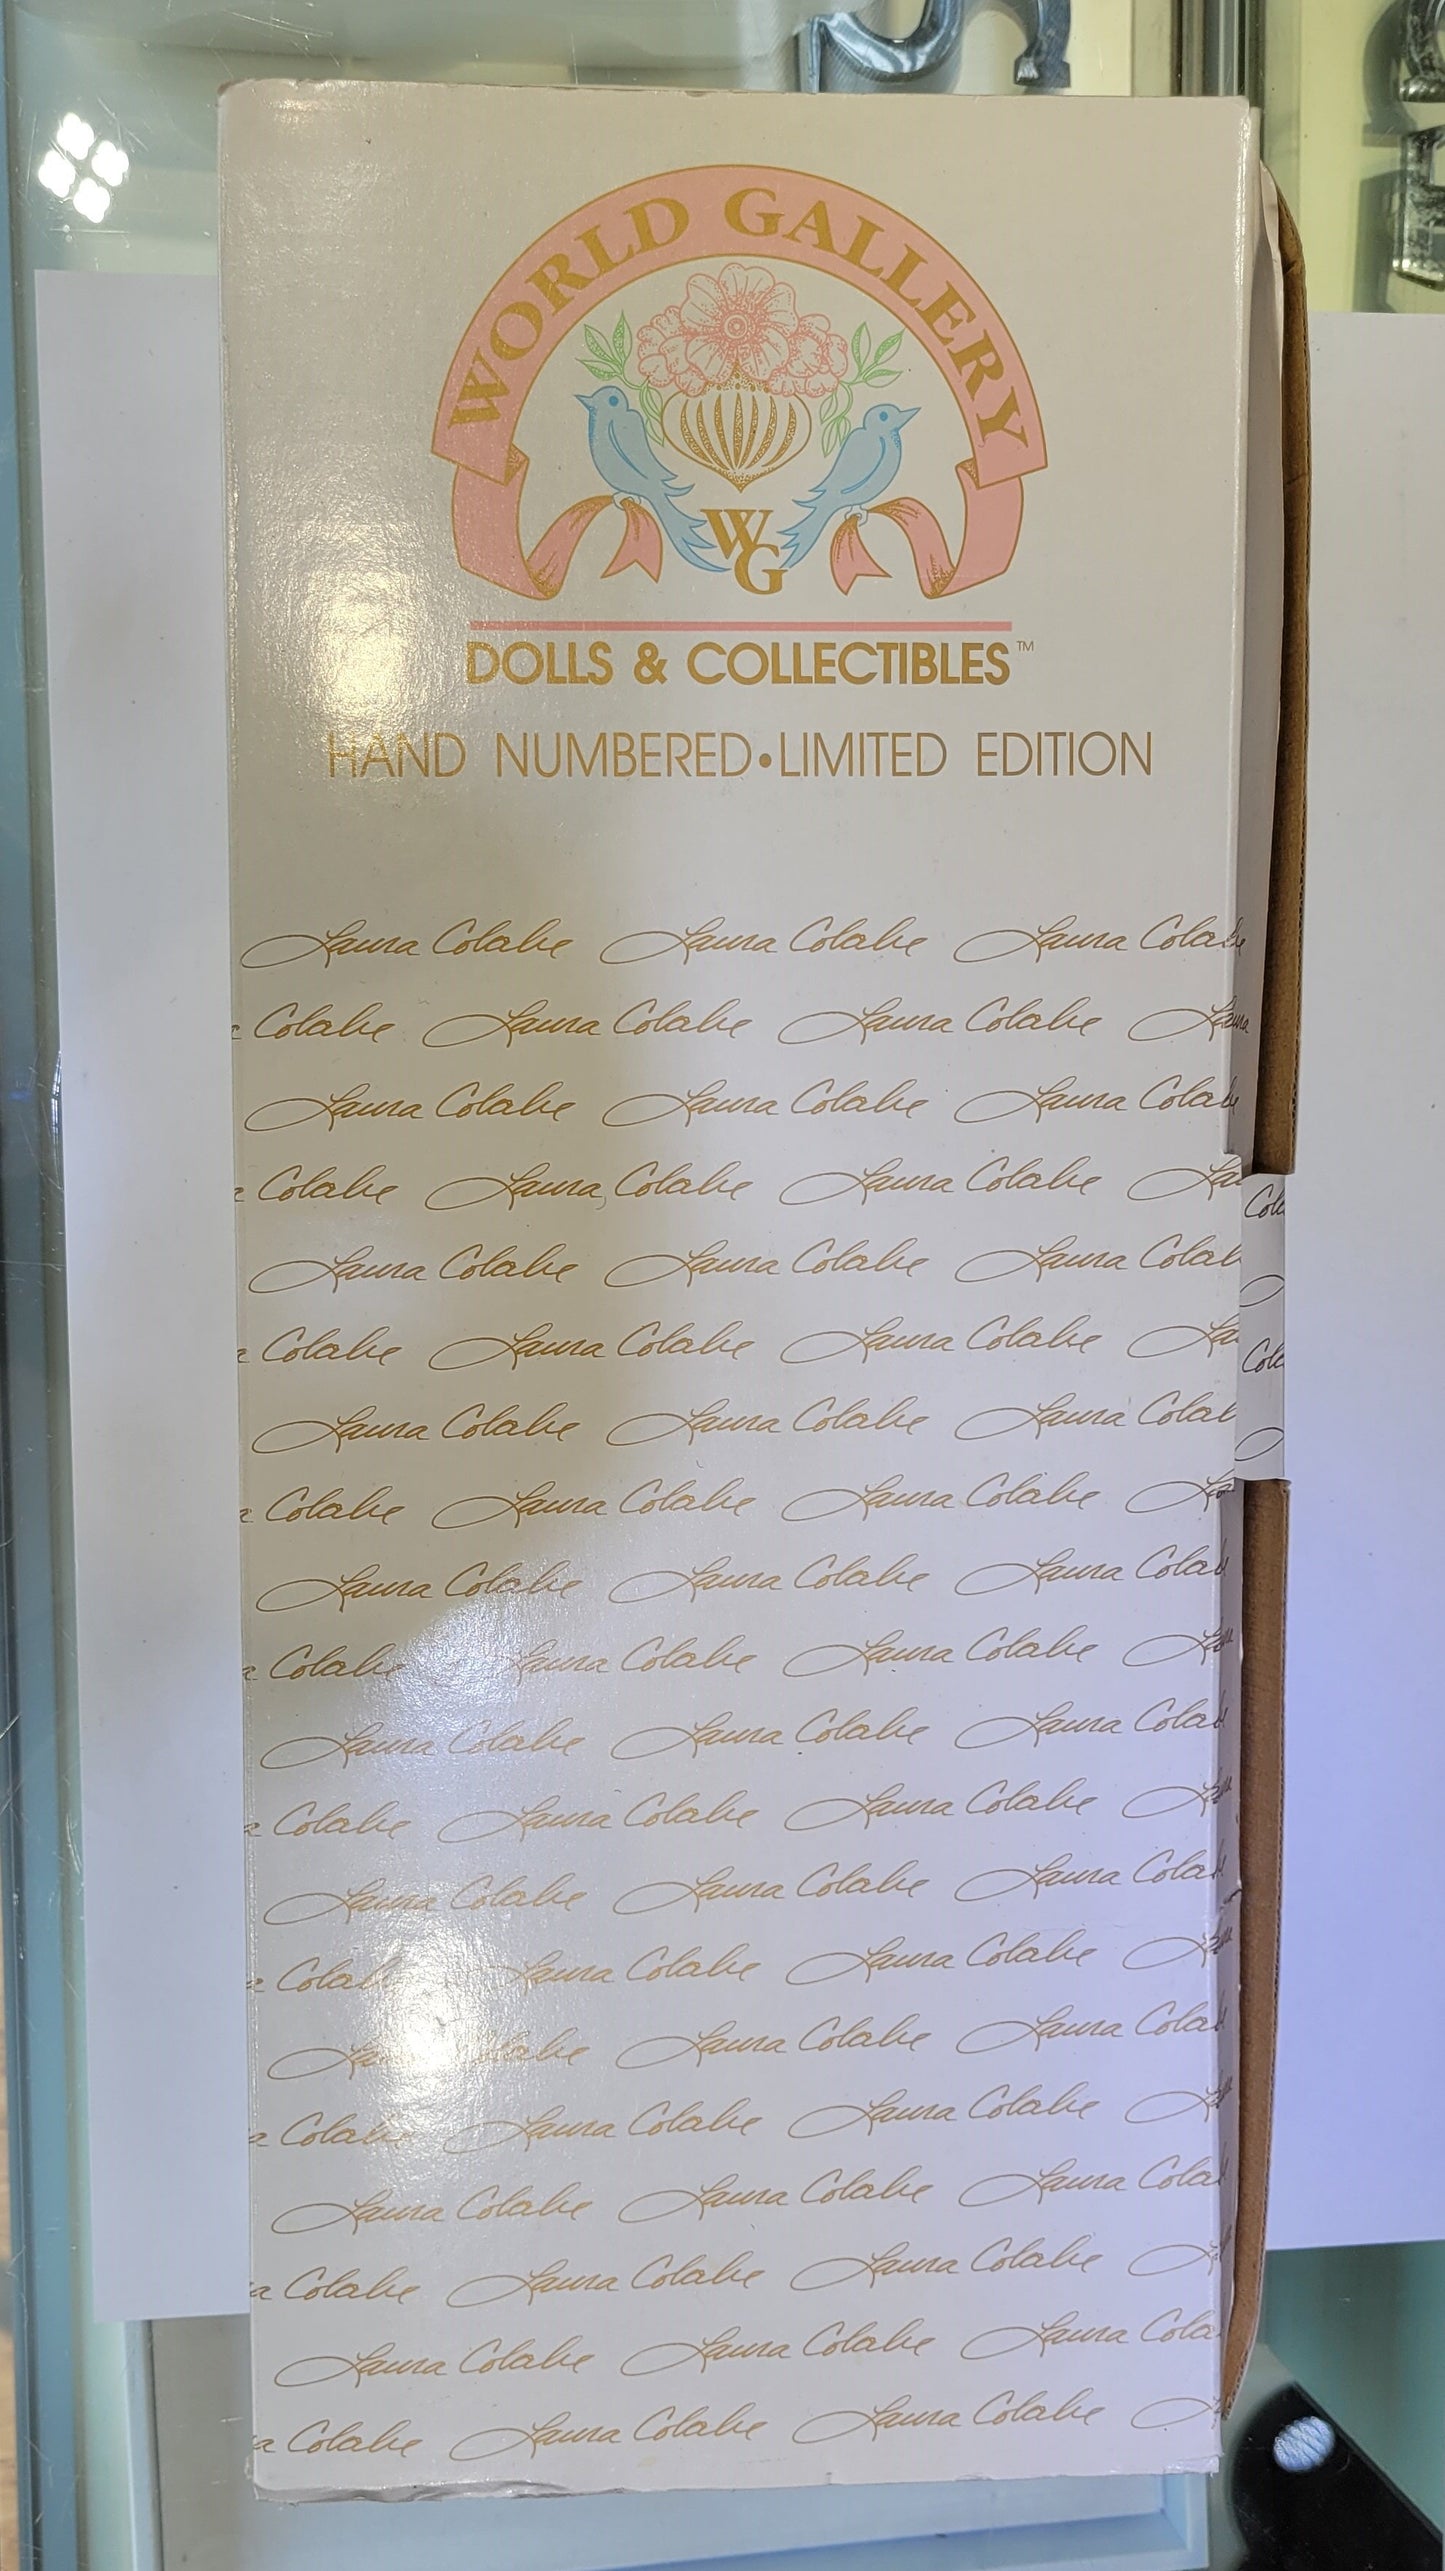 WORLD GALLERY
WG
DOLLS & COLLECTIBLES™
HAND NUMBERED • LIMITED EDITION
Laura Colabe Laura Colabe Laura Colabe
a Colabe Laura Colabe Laura Colabe Laura
Laura Colabe Laura Colabe Laura Colab
a Colabe Laura Colabe Laura Colabe Lau
Laura Colabe Laura Colabe Laura Colab
a Colabe Laura Colabe Laura Colabe La
Laura Colabe Laura Colabe Laura Colab
a Colabe Laura Colabe Laura Colabe
Laura Colabe Laura Colabe Laura Colab
a Colabe Laura Colabe Laura Colabe
Laura Colabe Laura Colabe Laura Colab
a Colabe Laura Colabe Laura Colabe
Laura Colabe Laura Colabe Laura Cola
a Colab Laura Colabe Laura Colabe
Laura Colabe Laura Colabe Laura Cola
a Colabe Laura Colabe Laura Colabe
Laura Colabe Laura Colabe Laura Colab
a Colabe Laura Colabe Laura Colabe
Laura Colabe Laura Colabe Laura Cola
a Colabe Laura Colabe Laura Colabe